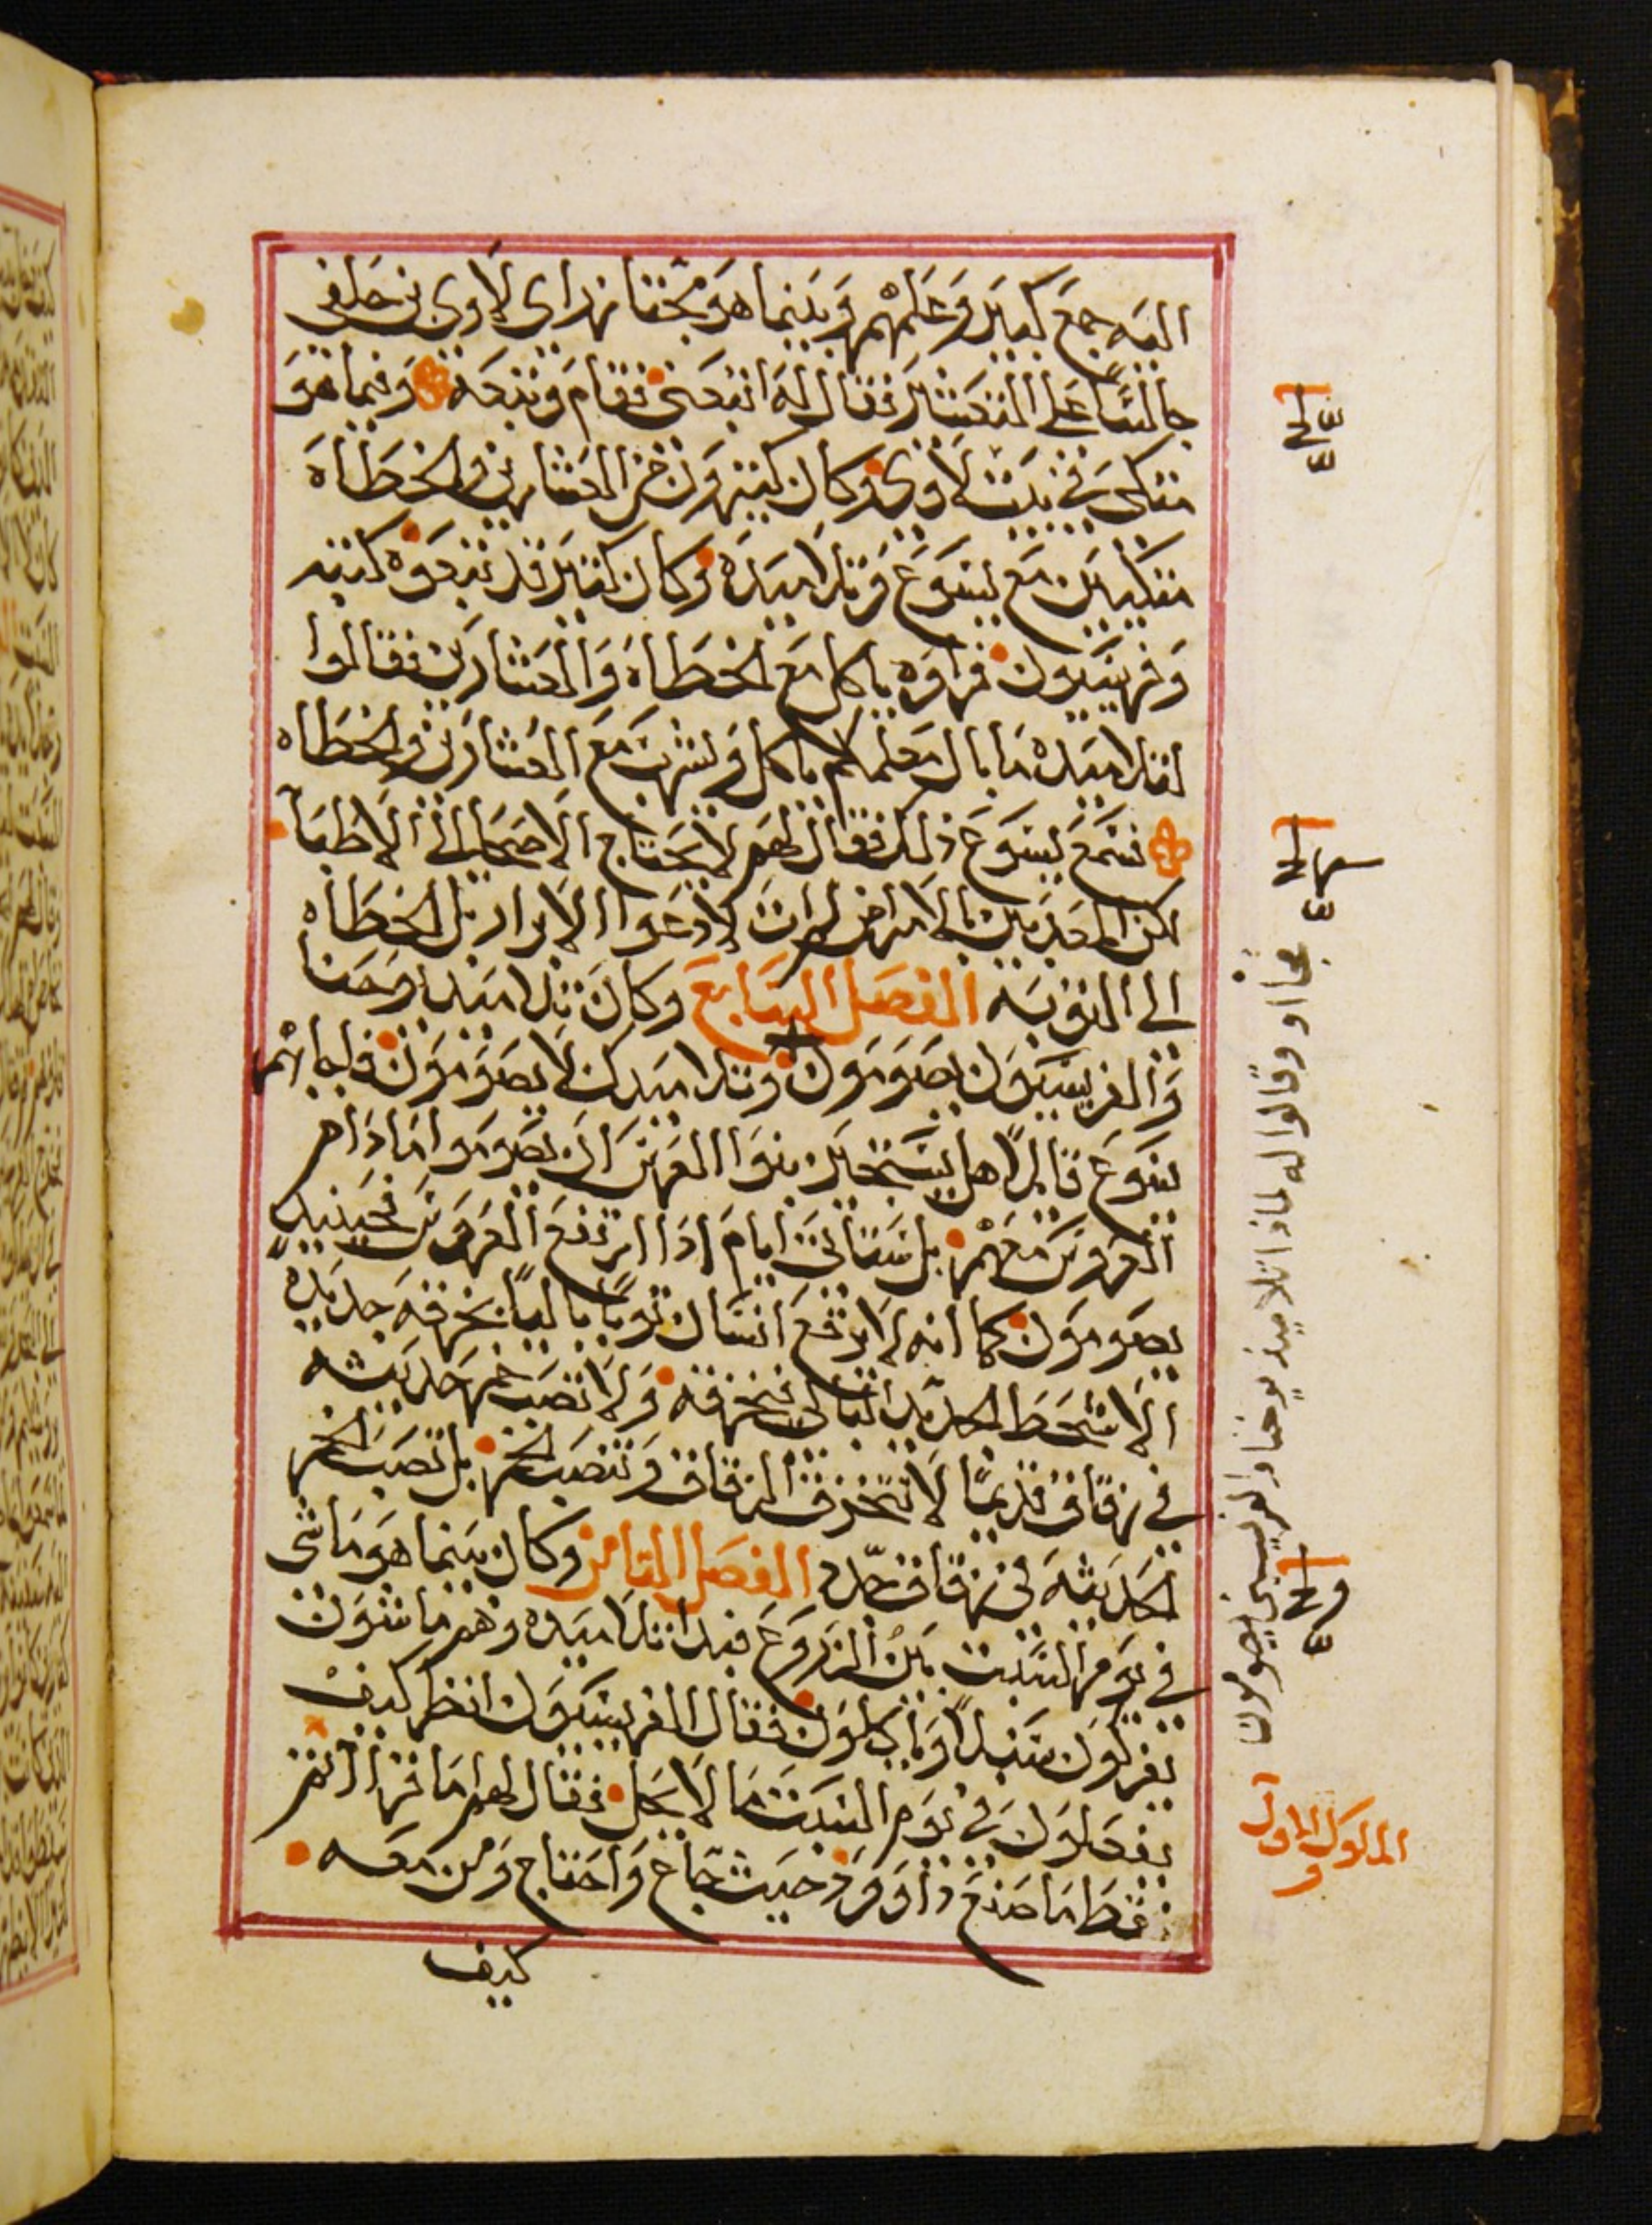 اليه جمع كبير وعلمهم وبينما هو مجتاز راى لاوى بن حلفى
جالسًا على التعشير فقال له اتبعنى فقام وتبعه وفيما هو
متكى فى بيت لاوى وكان كثيرون من العشارين والخطاه
متكيين مع يسوع وتلاميده وكان كثير قد تبعوه كتبه
وفريسيون فراوه ياكل مع الخطاه والعشارين فقالوا
لتلاميده ما بال معلمكم ياكل ويشرب مع العشارين والخطاه
فسمع يسوع ذلك فقال لهم لا يحتاج الاصحا الى الاطبا
لكن المعذبين بالامراض لم ات لادعوا الابرار بل الخطاه
الى التوبه الفصل السابع وكان تلاميد يوحنا
والفريسيون يصومون وتلاميدك لا يصومون فاجابهم
يسوع قايلًا هل يستطيع بنوا العرس ان يصوموا ما دام
العروس معهم بل ستاتى ايام ادا ارتفع العروس فحينيدٍ
يصومون كما انه لا يرقع انسان ثوبًا باليًا بخرقه جديده
الا شحط الجديد البالى فيخرقه ولا تصب خمر حديثه
فى زقاق قديمًا لا تنخرق الزقاق وتنصب الخمر بل تصب الخمر
الحديثه فى زقاق جدد الفصل التامن وكان بينما هو ماشى
فى يوم السبت بين الزروع فبدا تلاميده وهم ماشون
يفركون سنبلًا وياكلون فقال الفريسيون انظر كيف
يفعلون فى يوم السبت ما لا يحل فقال لهم اما قراتم
قط ما صنع داوود حيث جاع واحتاج ومن معه
كيف
فجااو وقالوا له لماذا تلاميذ يوحنا والفريسيين يصومون
الملوك الاول